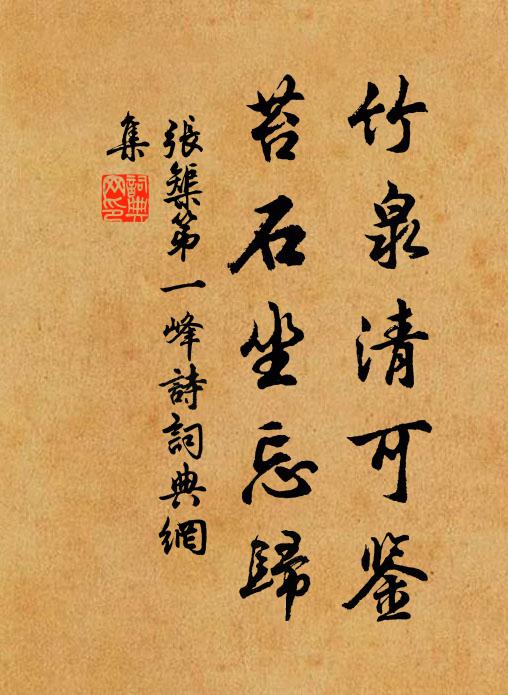 竹泉清可鉴
苔石坐忘歸
張榘第一峰詩詞典網
集
詞典
网印